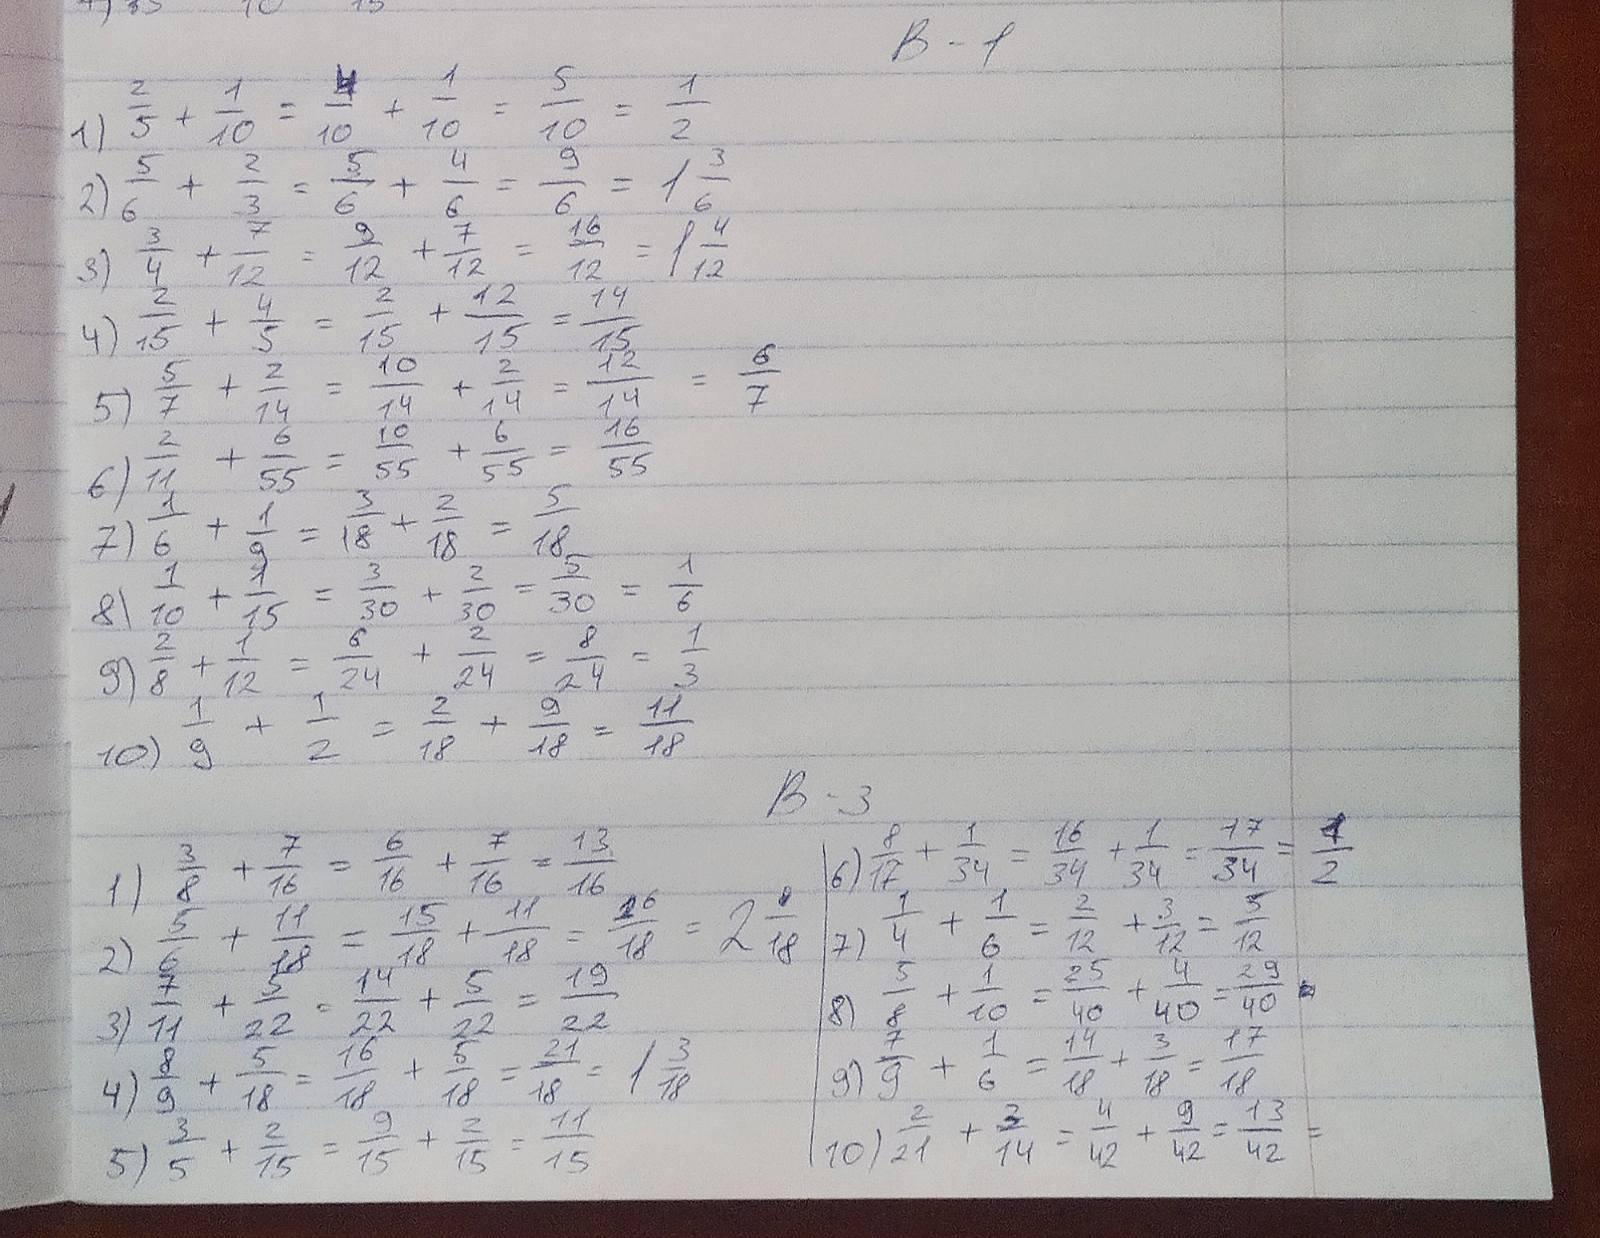 В - 1
1) 2/5 + 1/10 = 4/10 + 1/10 = 5/10 = 1/2
2) 5/6 + 2/3 = 5/6 + 4/6 = 9/6 = 1 3/6
3) 3/4 + 7/12 = 9/12 + 7/12 = 16/12 = 1 4/12
4) 2/15 + 4/5 = 2/15 + 12/15 = 14/15
5) 5/7 + 2/14 = 10/14 + 2/14 = 12/14 = 6/7
6) 2/11 + 6/55 = 10/55 + 6/55 = 16/55
7) 1/6 + 1/9 = 3/18 + 2/18 = 5/18
8) 1/10 + 1/15 = 3/30 + 2/30 = 5/30 = 1/6
9) 2/8 + 1/12 = 6/24 + 2/24 = 8/24 = 1/3
10) 1/9 + 1/2 = 2/18 + 9/18 = 11/18
В - 3
1) 3/8 + 7/16 = 6/16 + 7/16 = 13/16
2) 5/6 + 11/18 = 15/18 + 11/18 = 26/18 = 2 /18
3) 7/11 + 5/22 = 14/22 + 5/22 = 19/22
4) 8/9 + 5/18 = 16/18 + 5/18 = 21/18 = 1 3/18
5) 3/5 + 2/15 = 9/15 + 2/15 = 11/15
6) 8/17 + 1/34 = 16/34 + 1/34 = 17/34 = 1/2
7) 1/4 + 1/6 = 2/12 + 3/12 = 5/12
8) 5/8 + 1/10 = 25/40 + 4/40 = 29/40
9) 7/9 + 1/6 = 14/18 + 3/18 = 17/18
10) 2/21 + 3/14 = 4/42 + 9/42 = 13/42 =